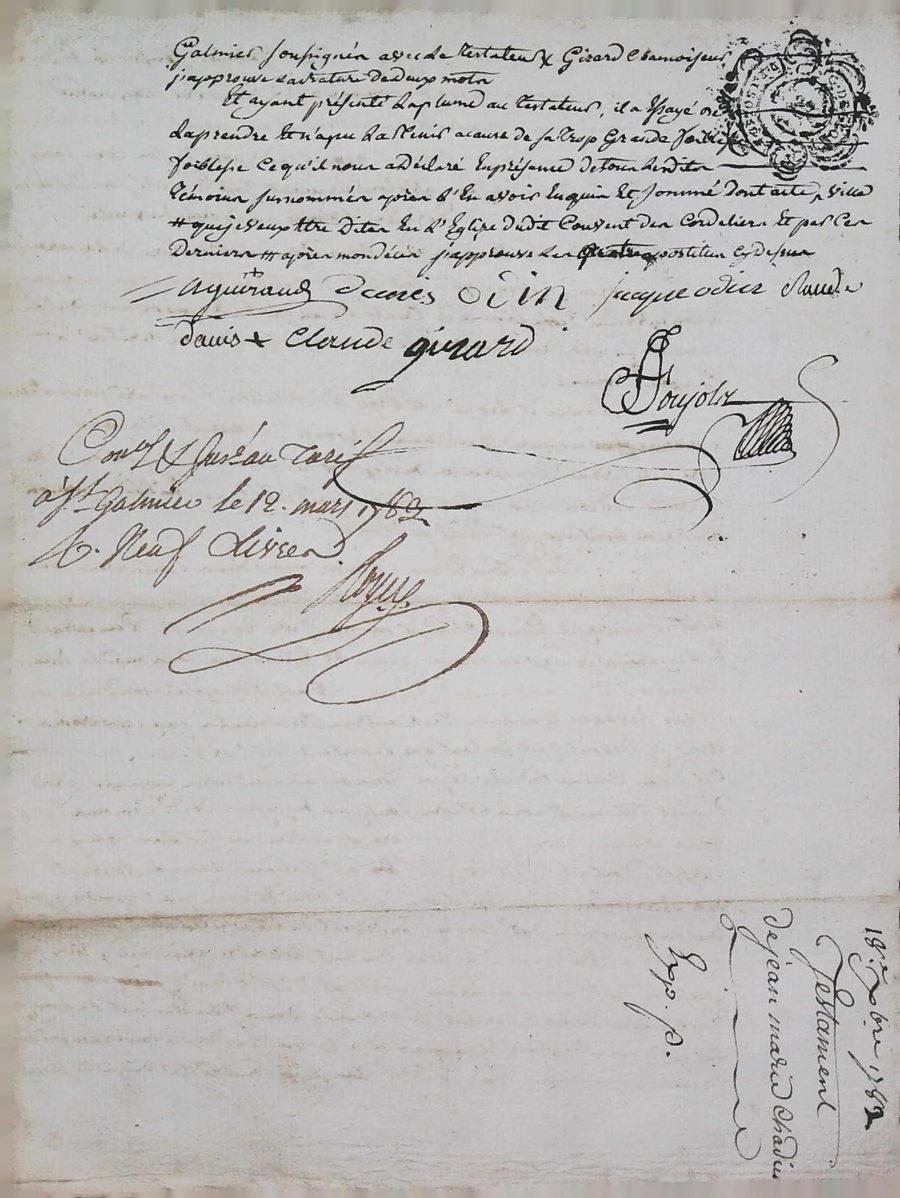 Galmier soussignés avec le testateur & Girard Chamoiseur
j'approuve la rature de deux mots
Et ayant présenté la plume au testateur, il a Esayé de
la prendre Et n'a pu la tenir a cause de sa trop Grande
foiblesse Ce qu'il nous a déclaré En présance de tous les dits
témoins surnommés après l'En avoir Enquis Et sommé dont acte, ville
# qui je veux Etre dites En l'Eglise dudit Couvent des Cordeliers Et par Ces
Derniers # après mon décès j'approuve les postilles Cy dessus
aguiraud odin jacque odier Claude
denis & Claude girard
Poujols
Con.lé & Jnsé au Tarif
à St Galmier le 12. mars 1782
R. Neuf Livres
18.e 7bre 1782
Testament
de jean marie Chadier
Exp. p.